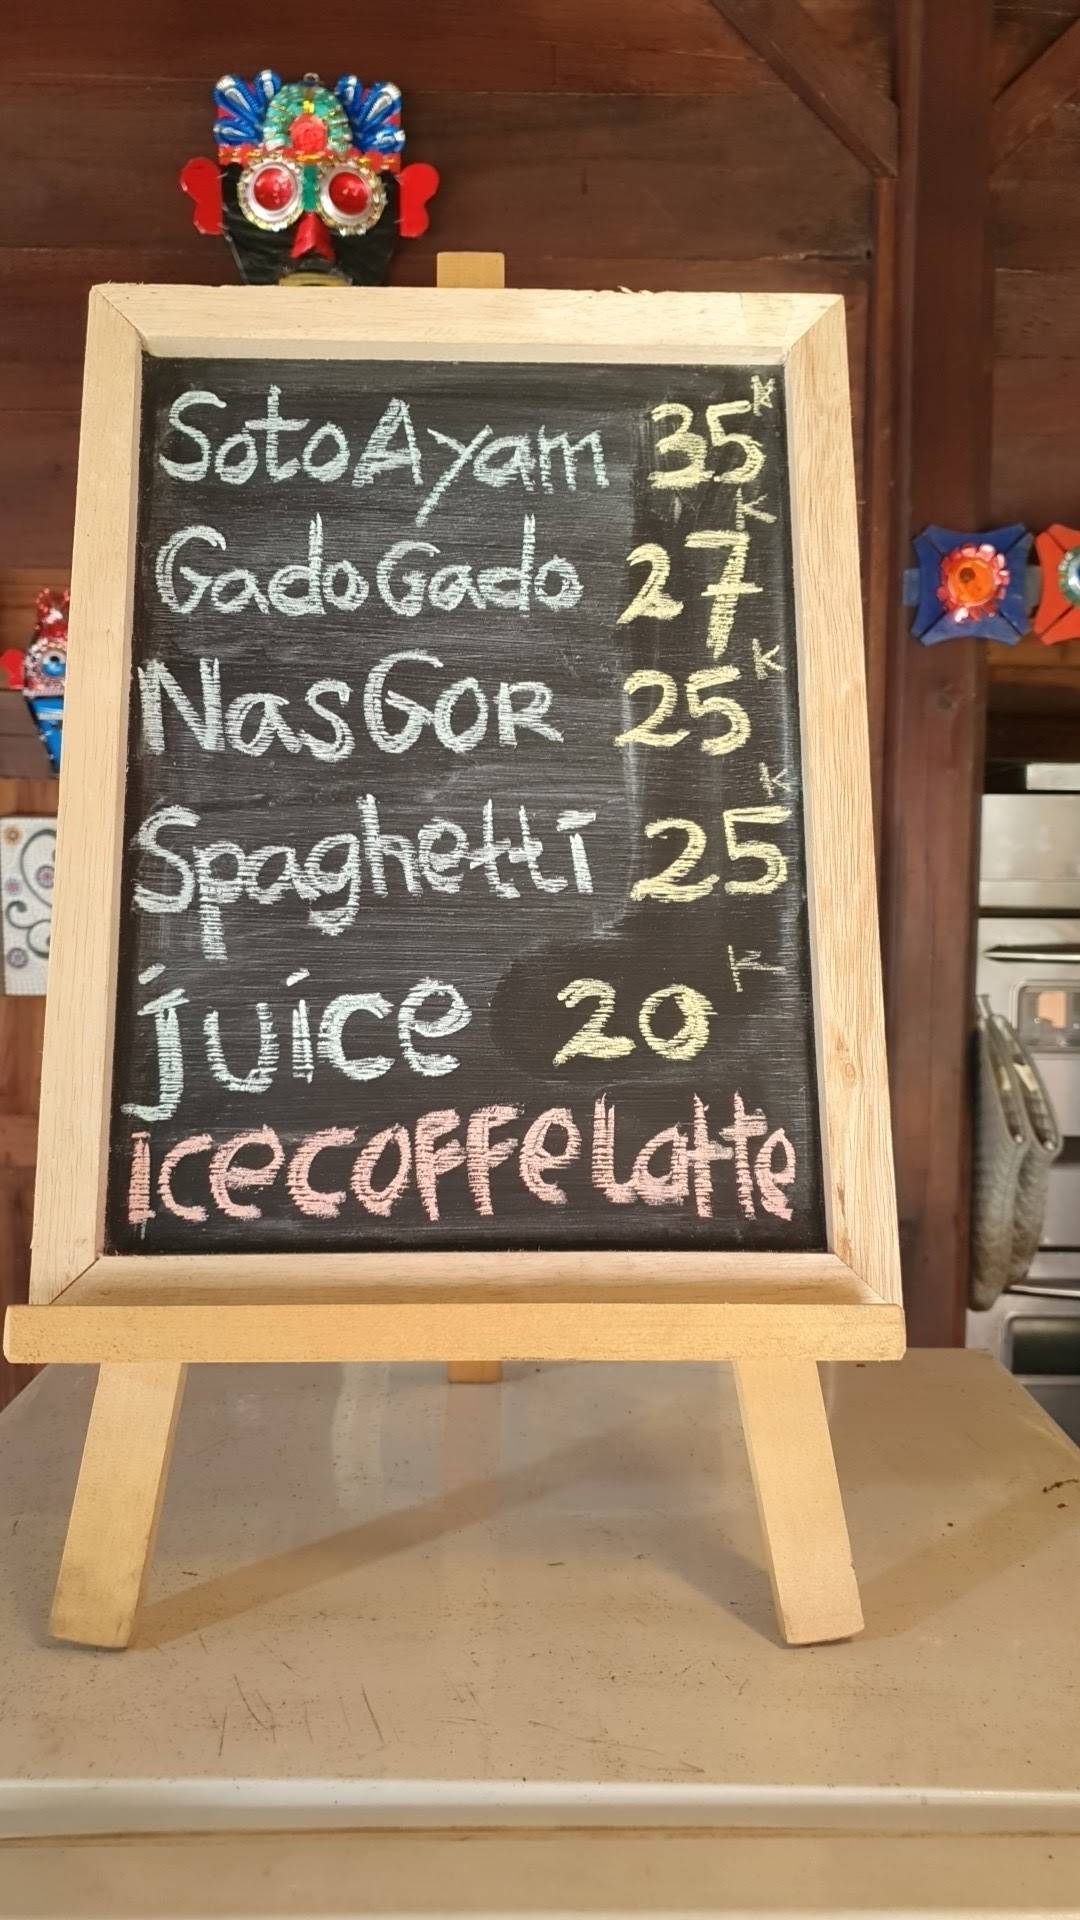 Soto Ayam 35K
Gado Gado 27K
NasGOR 25K
Spaghetti 25K
juice 20K
Ice coffe Latte